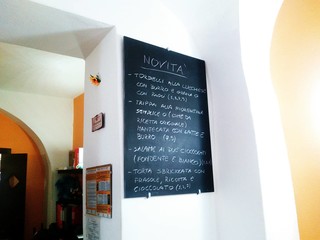 NOVITA'
- TORDELLI ALLA LUCCHESE
CON BURRO E SALVIA O
CON RAGU
- TRIPPA ALLA
SEMPLICE O (COME DA
RICETTA ORIGINALE)
MANTECATA CON LATTE E
BURRO
- SALAME AI DUE CIOCCOLATI
(FONDENTE E BIANCO)
- TORTA SBRICIOLATA CON
FRAGOLE, RICOTTA E
CIOCCOLATO